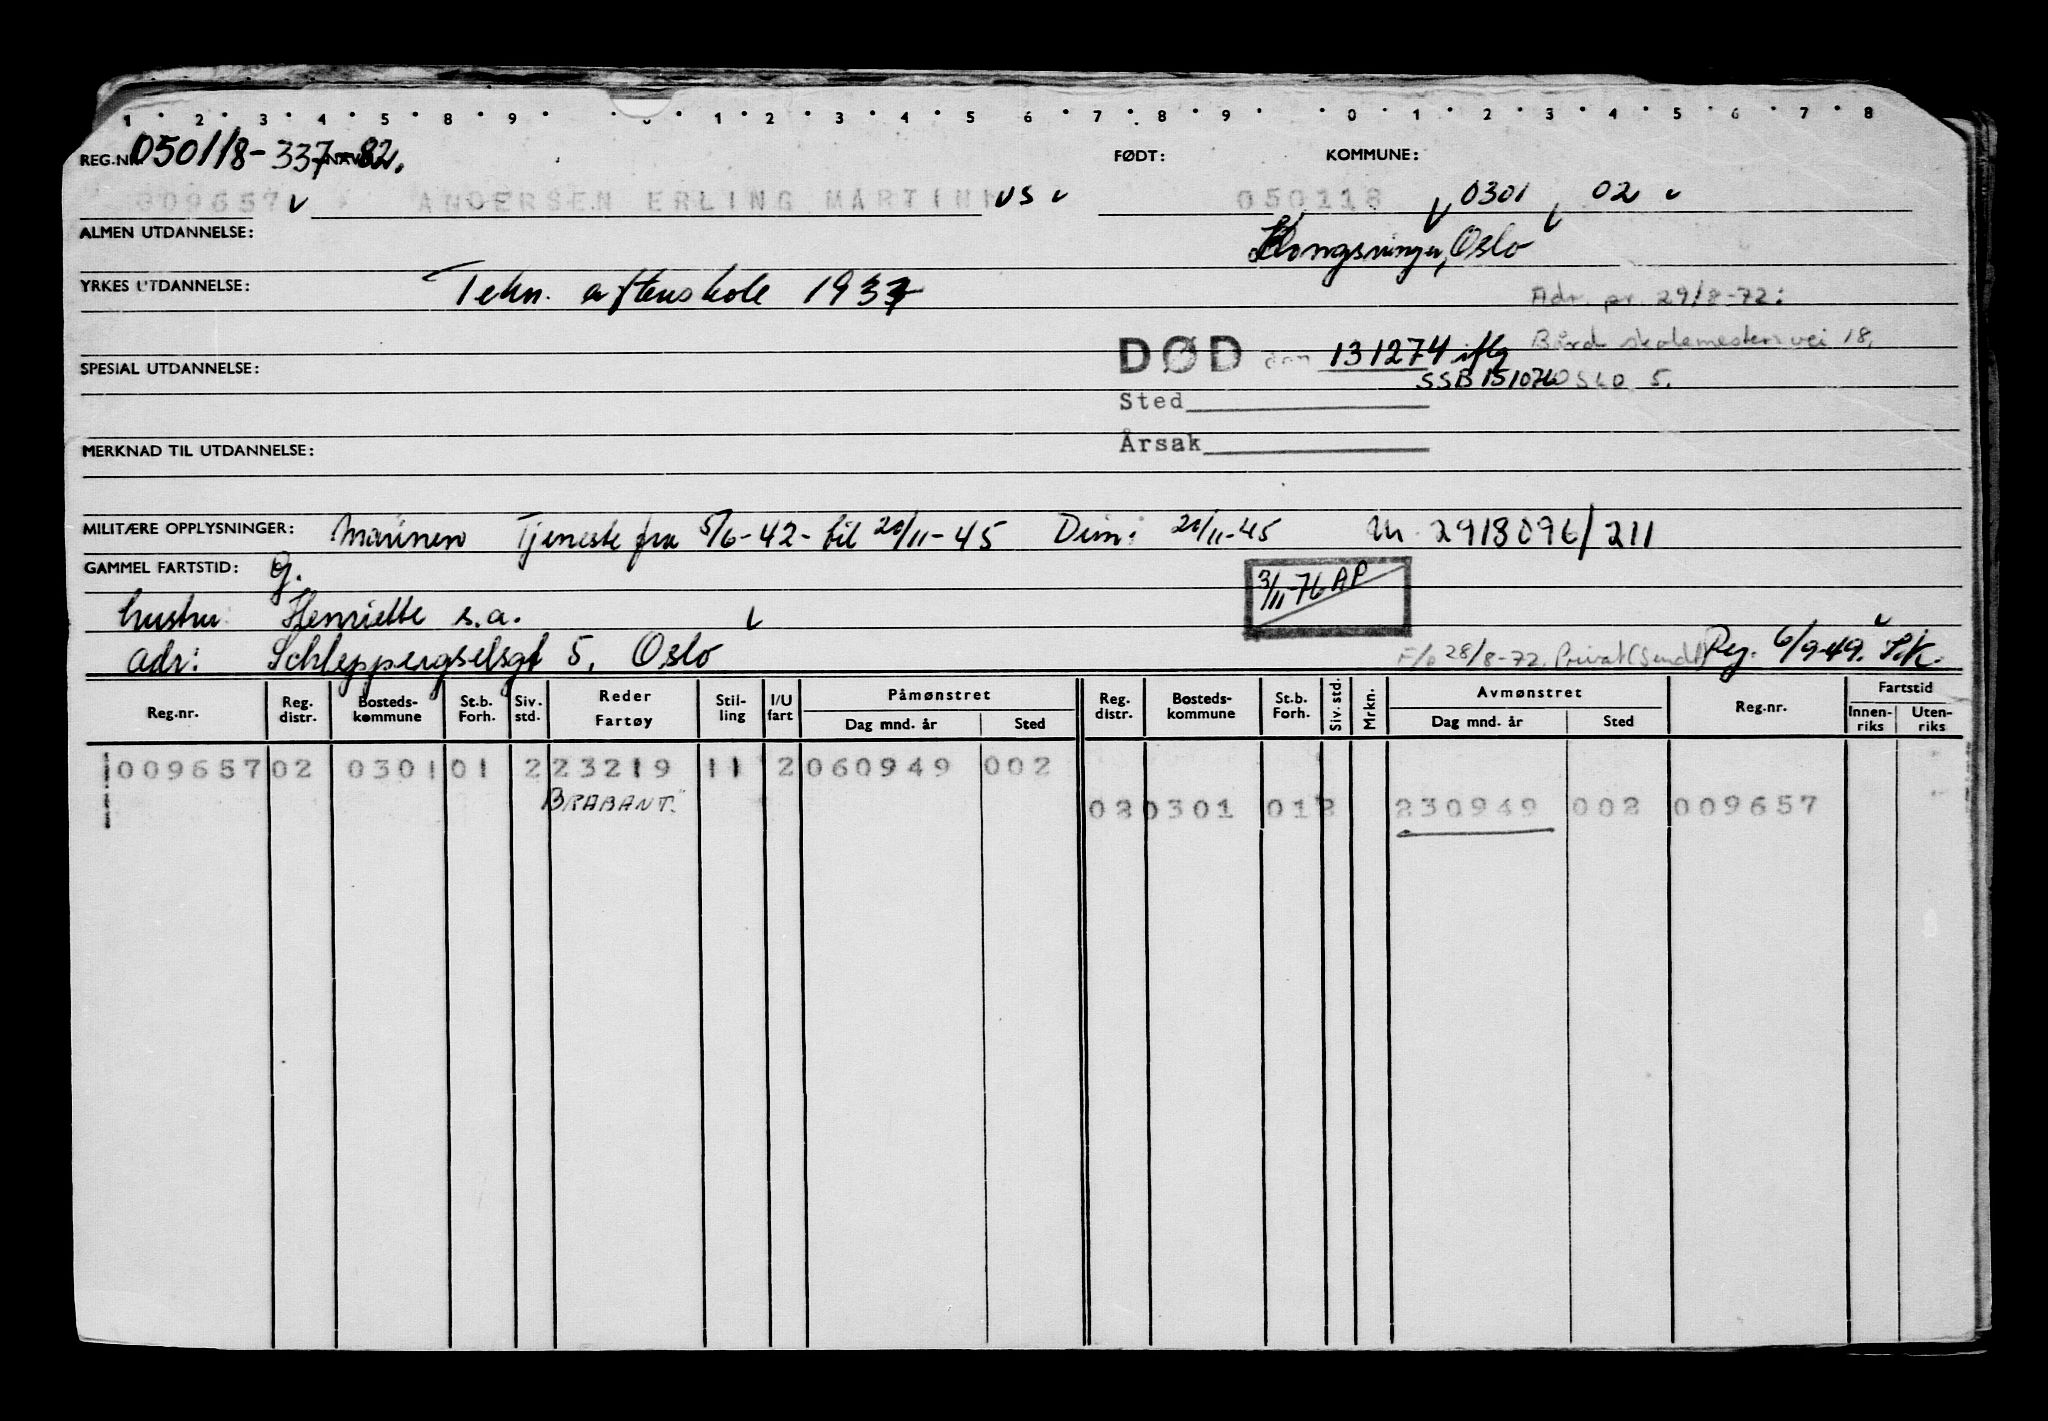 1 2 3 4 5 8 9 1 2 3 4 5 6 7 8 9 0 1 2 3 4 5 6 7 8
REG.NR. 050118-337-82. FØDT: KOMMUNE:
009657 ANDERSEN ERLING MARTIN US 050118 0301 02
ALMEN UTDANNELSE: Kongsvinger, Oslo
YRKES UTDANNELSE: Tekn. aftenskole 1937
Adr. pr. 29/8-72:
DØD den 131274 iflg Bård skolemesters vei 18,
SPESIAL UTDANNELSE: SSB 151076 OSLO 5.
Sted
MERKNAD TIL UTDANNELSE: Årsak
MILITÆRE OPPLYSNINGER: Marinen Tjeneste fra 5/6-42- til 20/11-45 Dim: 20/11-45 M. 2918096/211
GAMMEL FARTSTID: g.
3/11-76 AP
hustru: Henriette s.a.
adr: Schleppergrelsgt 5, Oslo F/b 28/8-72. Privat (Sendt) Reg. 6/9-49. S.K.
Reg.nr. Reg. distr. Bosteds-kommune St.b. Forh. Siv. std. Reder Fartøy Stil-ling I/U fart Påmønstret Dag mnd. år Sted Reg. distr. Bosteds-kommune St.b. Forh. Siv. std. Mrkn. Avmønstret Dag mnd. år Sted Reg.nr. Fartstid Innen-riks Uten-riks
009657 02 0301 01 2 23219 11 2 060949 002
"BRABANT" 02 0301 01 2 230949 002 009657